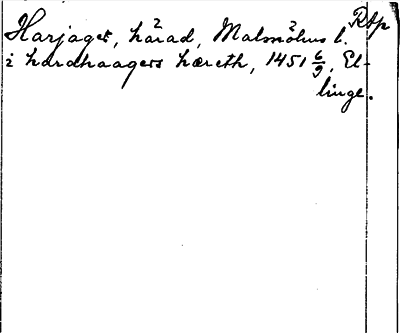 Rtp
Harjager, härad, Malmöhus l.
i hardhaagers hæreth, 1451 6/9. El-
linge.